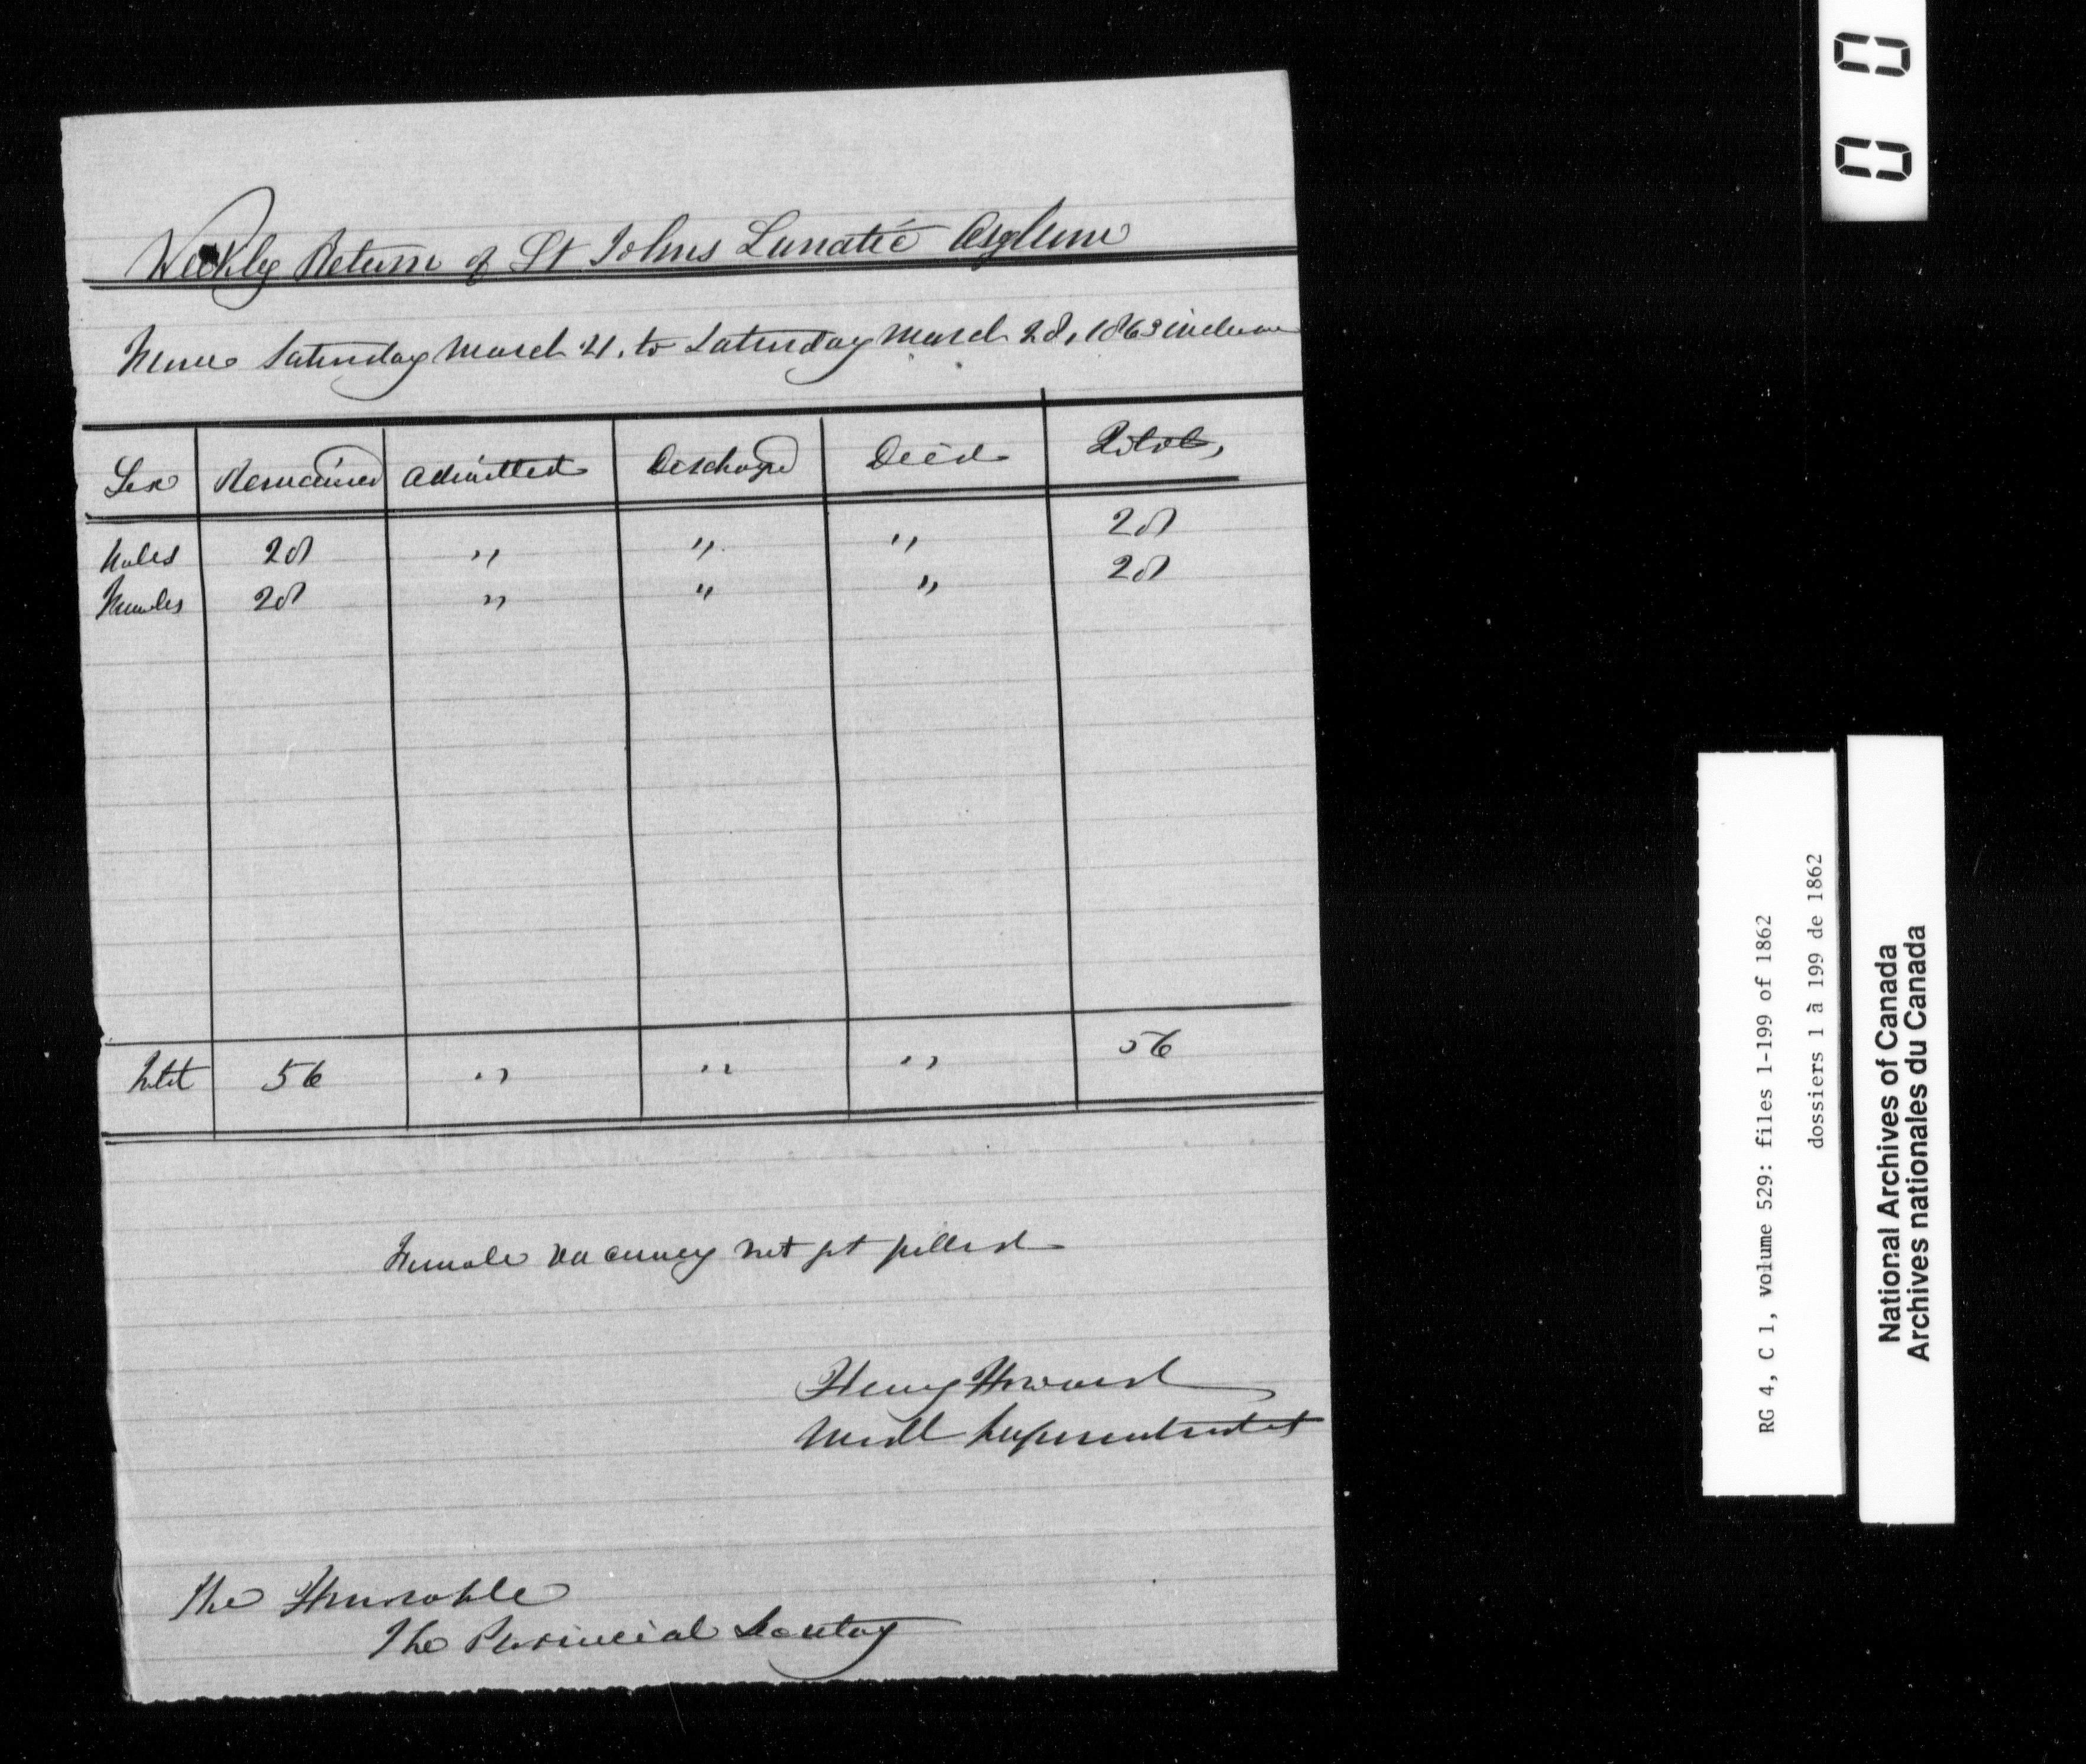 Weekly Return of St Johns Lunatic Asylum
From Saturday March 21. to Saturday March 28, 1863 inclusive
Sex Remained Admitted Discharged Died Total,
Males 28 " " " 28
Females 28 " " " 28
Total 56 " " " 56
Female vacancy not yet filled
Henry Howard
Medl Superintendent
The Honorable
The Provincial Secretary
00
RG 4, C 1, volume 529: files 1-199 of 1862
dossiers 1 à 199 de 1862
National Archives of Canada
Archives nationales du Canada